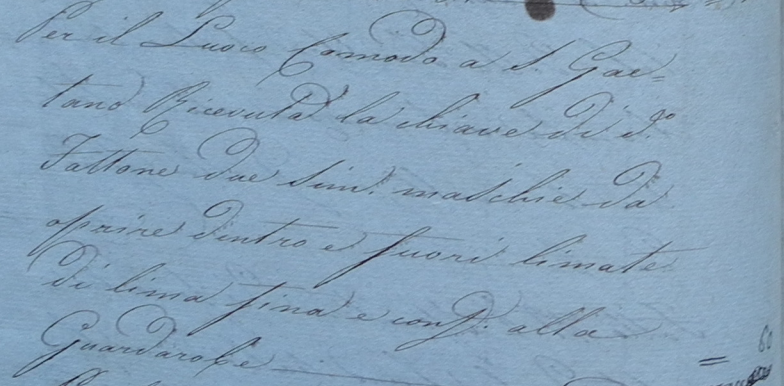 Per il Luoco Comodo a S. Gae=
tano Ricevuta la chiave di d.º
Fattone due sim.i maschie da
oprire dentro e fuori limate
di lima fina e cons.e alla
Guardarobe = 60